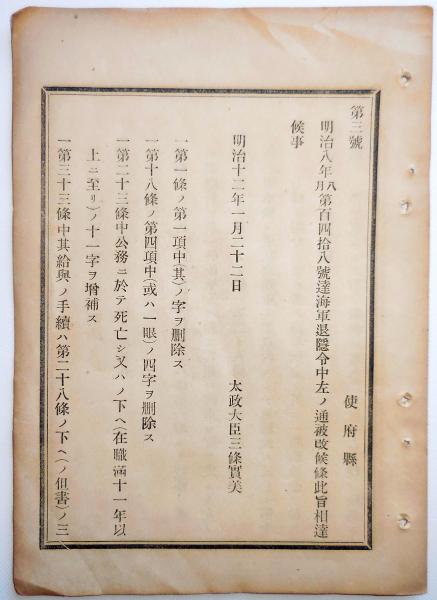 第三號
使府縣
明治八年八月第百四拾八號達海軍退隱令中左ノ通被改候條此旨相達
候事
明治十二年一月二十二日
太政大臣三條實美
一第一條ノ第一項中(其)ノ字ヲ删除ス
一第十八條ノ第四項中(或ハ一眼)ノ四字ヲ删除ス
一第二十三條中公務ニ於テ死亡シ又ハノ下ヘ(在職滿十一年以
上ニ至リ)ノ十一字ヲ增補ス
一第三十三條中其給與ノ手續ハ第二十八條ノ下ヘ(ノ但書)ノ三